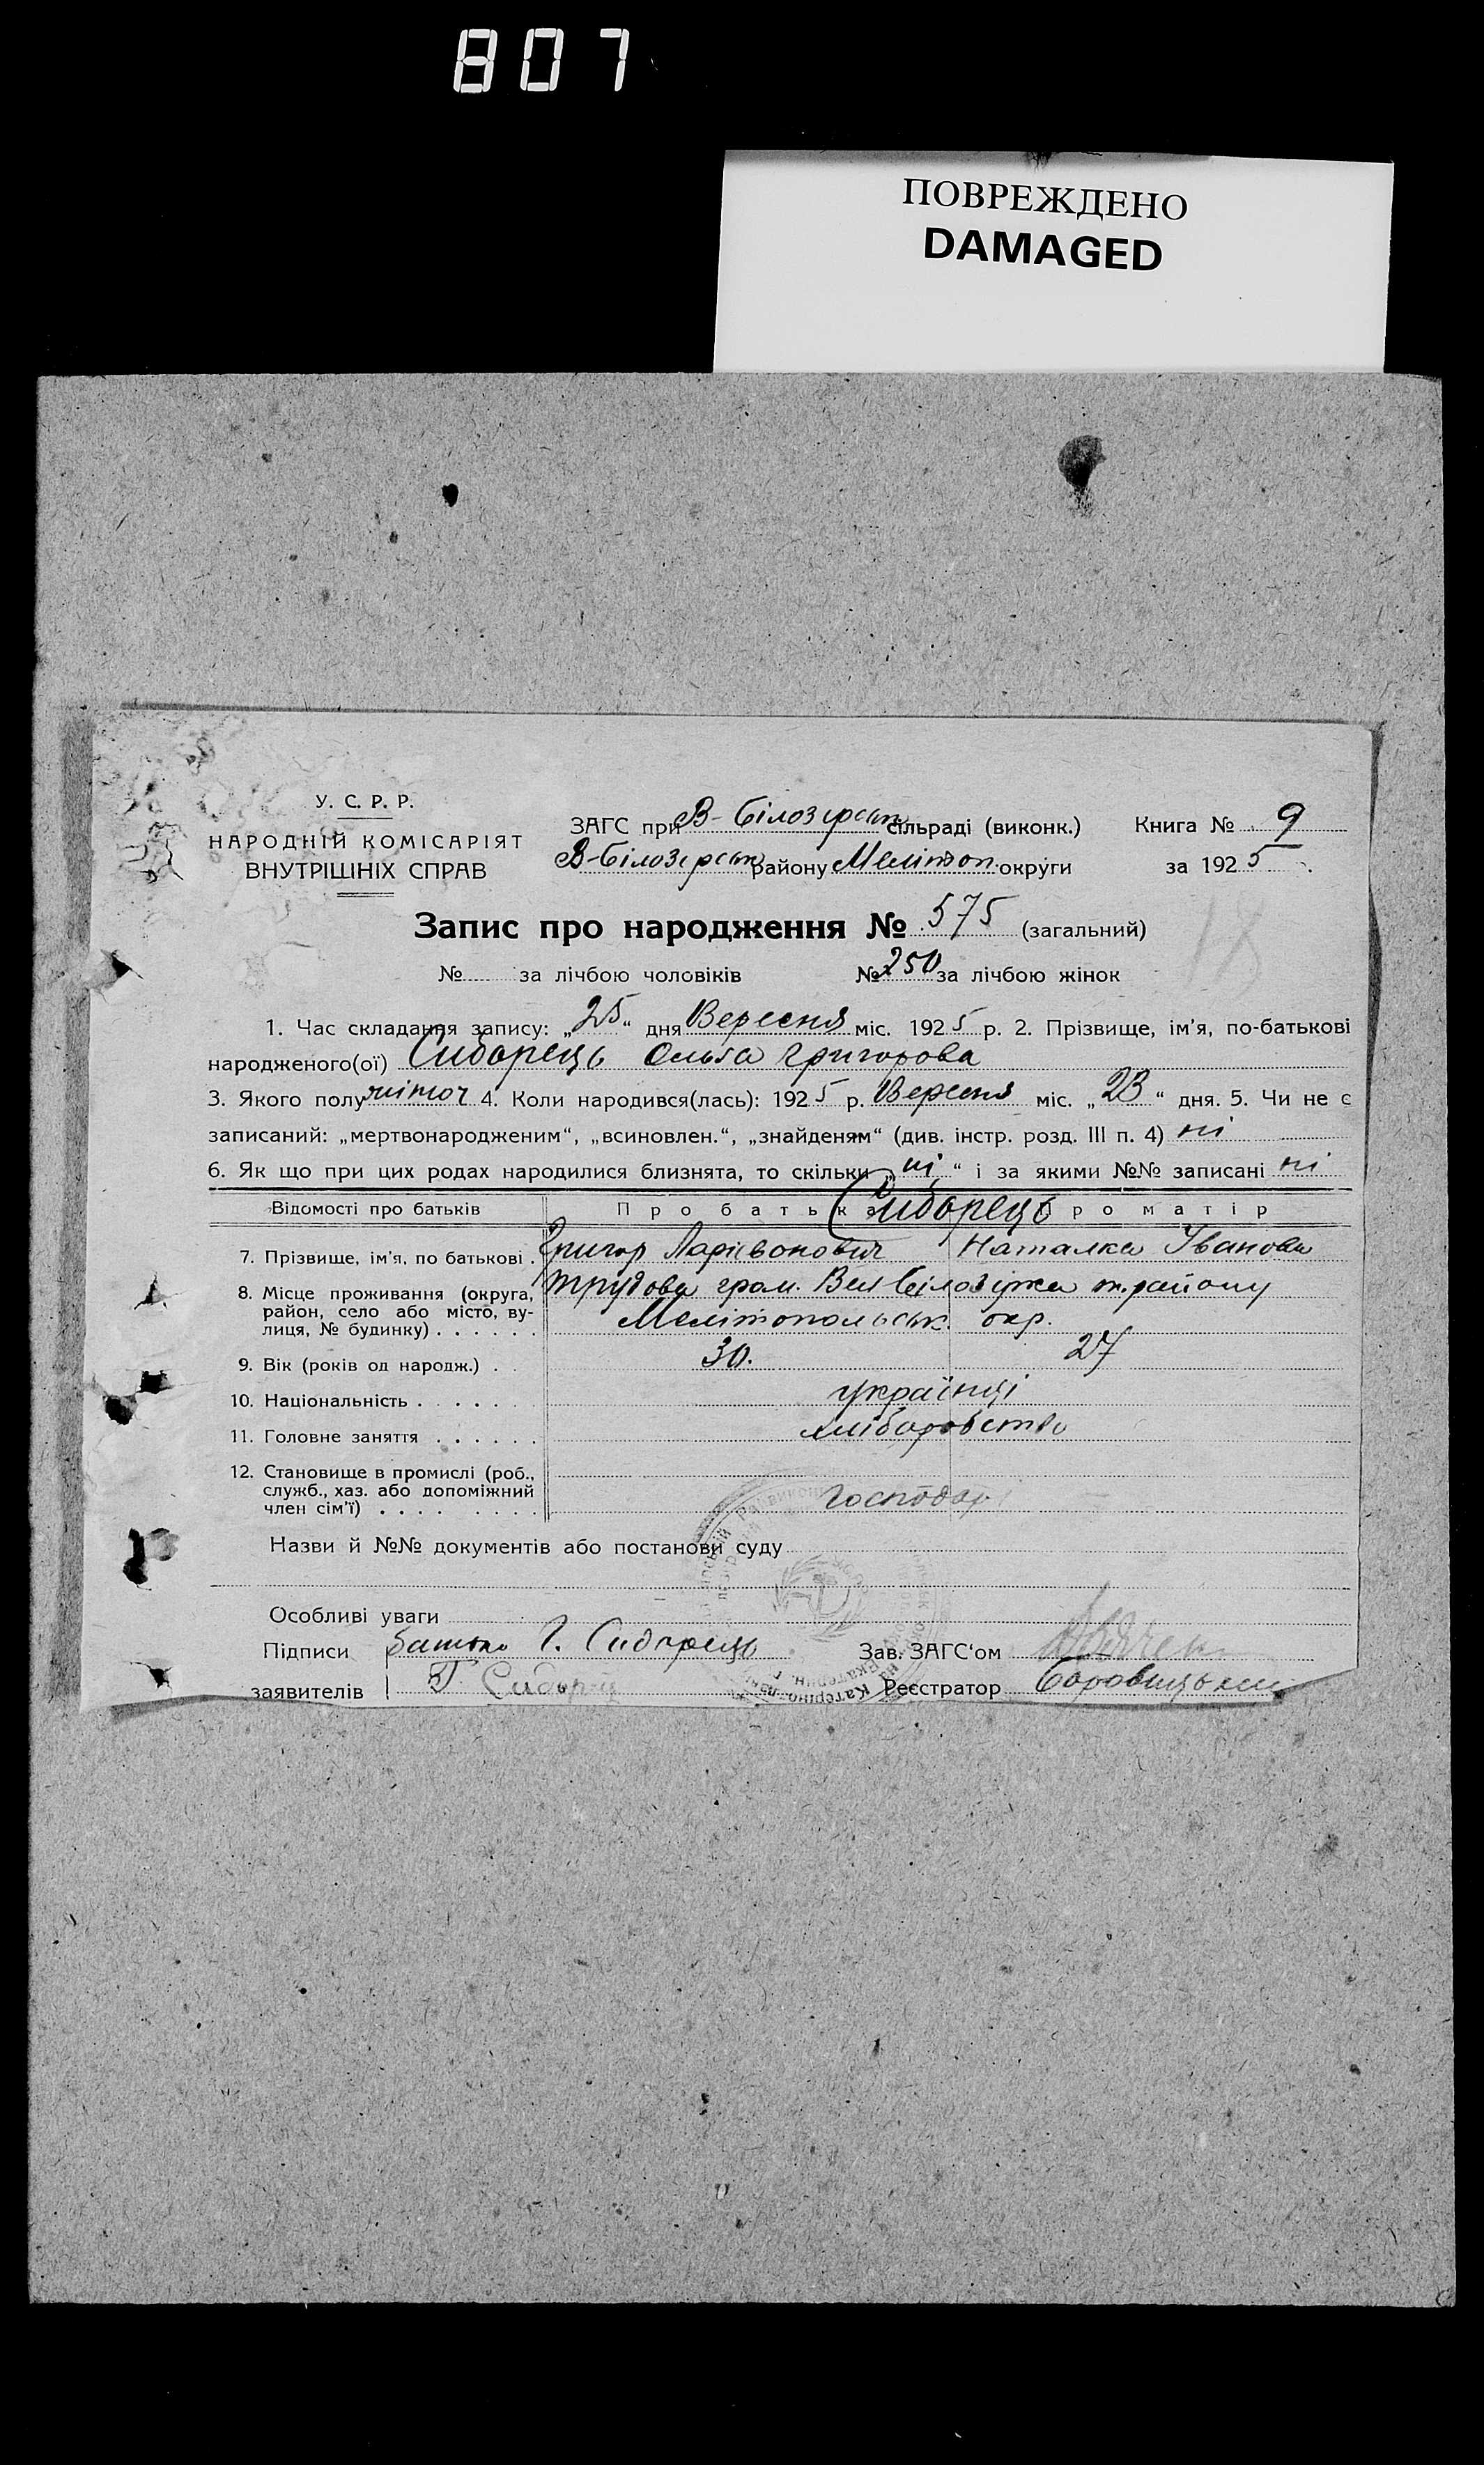 807
ПОВРЕЖДЕНО
DAMAGED
У. С. Р. Р.
НАРОДНІЙ КОМІСАРІЯТ
ВНУТРІШНІХ СПРАВ
ЗАГС при В-Білозерськ сільраді (виконк.)
В-Білозерськ району Мелітоп. округи
Книга № 9
за 1925
Запис про народження № 575 (загальний)
№ за лічбою чоловіків № 250 за лічбою жінок
1. Час складання запису: „25“ дня Вересня міс. 1925 р. 2. Прізвище, ім'я, по-батькові
народженого(ої) Сидорець Ольга Григорова
3. Якого полу жіноч 4. Коли народився(лась): 1925 р. Вересня міс. „23“ дня. 5. Чи не є
записаний: „мертвонародженим“, „всиновлен.“, „знайденям“ (див. інстр. розд. III п. 4) ні
6. Як що при цих родах народилися близнята, то скільки „ні“ і за якими №№ записані ні
Відомості про батьків Про батька Про матір
Сидорець
7. Прізвище, ім'я, по батькові . Григор Ларівонович Наталка Іванова
8. Місце проживання (округа, район, село або місто, вулиця, № будинку) . . . . . . Трудова гром. Вел Білозірка т. району
Мелітопольськ. окр.
9. Вік (років од народж.) . . 30. 27
10. Національність . . . . . . українці
11. Головне заняття . . . . . . хліборобство
12. Становище в промислі (роб., служб., хаз. або допоміжний член сім'ї) . . . . . . . . господар
Назви й №№ документів або постанови суду
Особливі уваги
Підписи батько Г. Сидорець Зав. ЗАГС'ом
заявителів Г Сидорец Реєстратор Боровицький